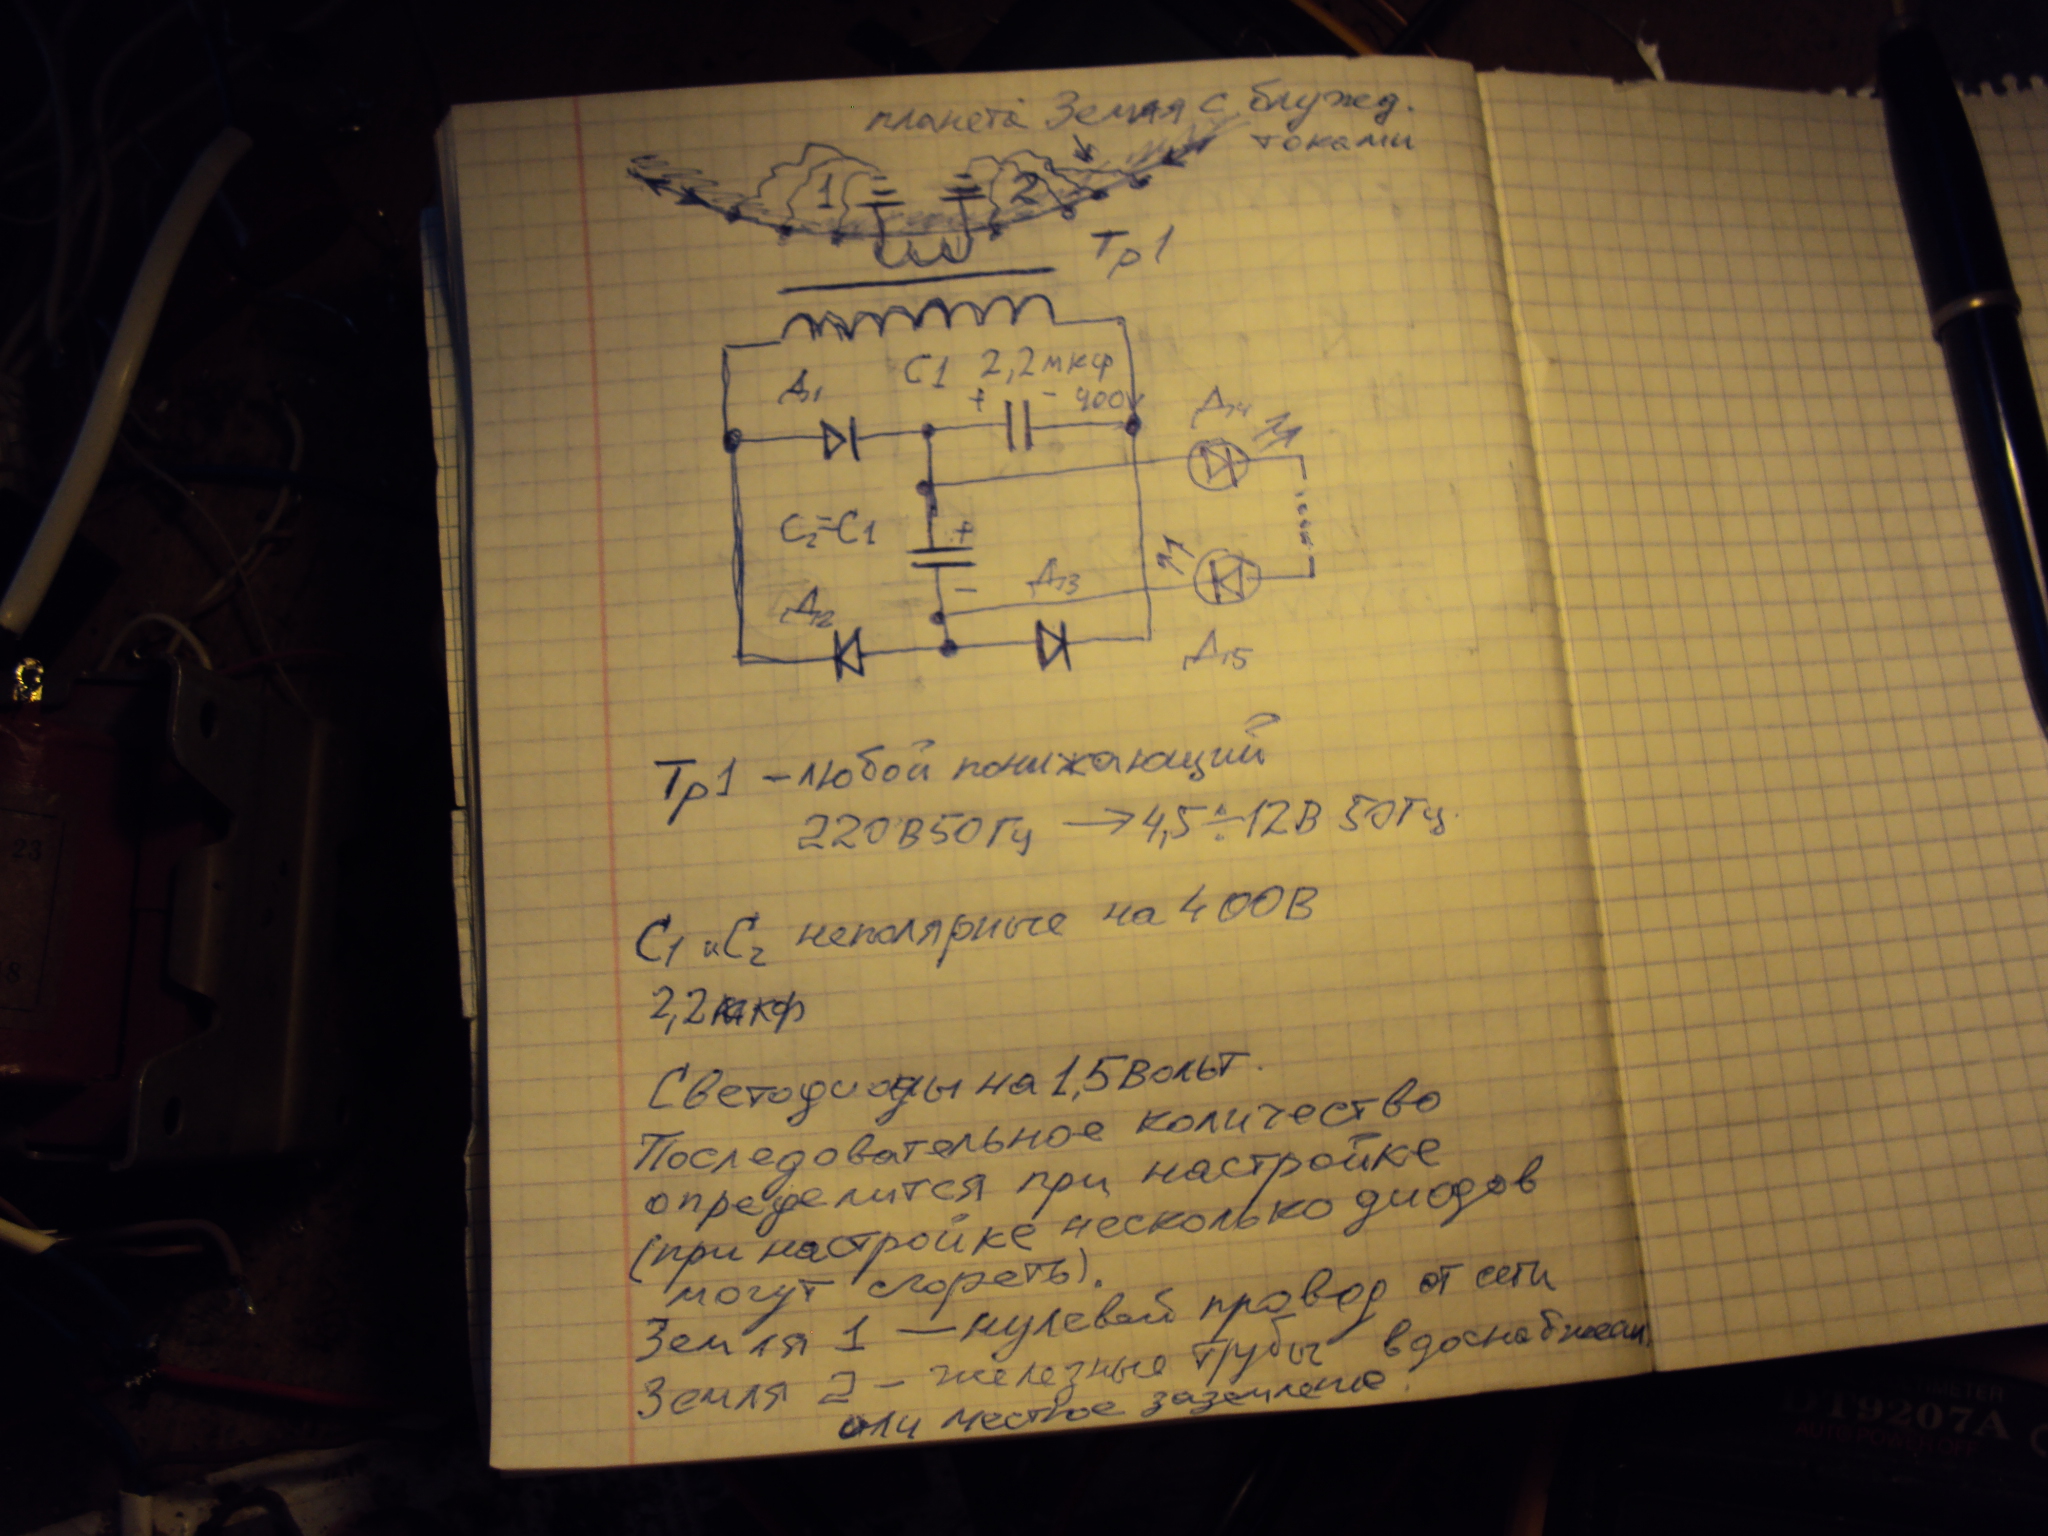 планета Земля с блужд.
токами
1
2
Тр1
С1 2,2мкф
Д1
+
-
400v
Д14
С2=С1
+
-
Д13
Д12
Д15
Тр1 – любой понижающий
220В50Гц → 4,5÷12В 50Гц.
С1 и С2 неполярные на 400В
2,2мкф
Светодиоды на 1,5 Вольт.
Последовательное количество
определится при настройке
(при настройке несколько диодов
могут сгореть).
Земля 1 – нулевой провод от сети
Земля 2 – железные трубы
или местное заземление.
23
18
19207A
AUTO POWER OFF